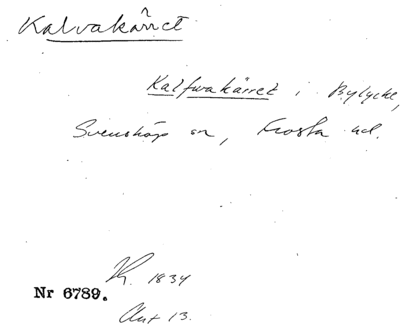 Kalvakärret
Kalfwakärret i Bylycke,
Svensköp sn, Frosta hd.
Lk. 1834
Nr 6789.
Akt 13.